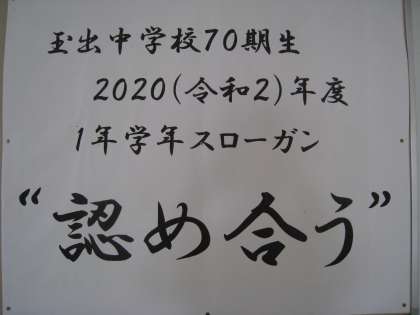 玉出中学校70期生
2020(令和2)年度
1年学年スローガン
“認め合う”